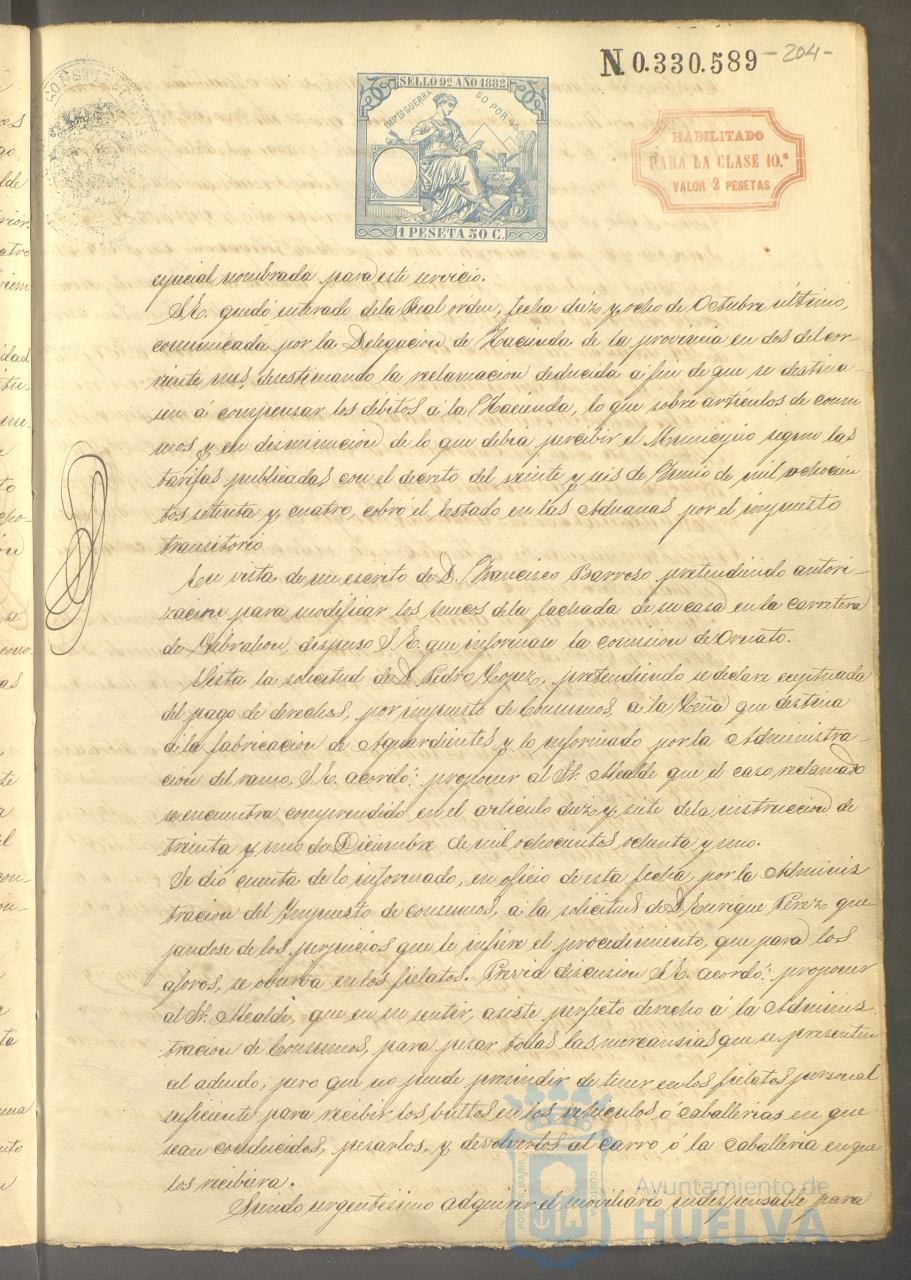 N. 0.330.589 -204-
SELLO 9º AÑO 1882
IMPTO GUERRA 50 POR %
1 PESETA 50 C.
HABILITADO
PARA LA CLASE 10.ª
VALOR 2 PESETAS
especial nombrada para este servicio.
S.E. quedó enterado de la Real orden, fecha diez y ocho de Octubre último,
comunicada por la Delegacion de Hacienda de la provincia en dos del cor-
riente mes, desestimando la reclamacion deducida a fin de que se destina-
sen á compensar los débitos á la Hacienda, lo que sobre artículos de consu
mos y en disminucion de lo que debia percibir el Municipio segun las
tarifas publicadas con el decreto del veinte y seis de Junio de mil ochocien
tos setenta y cuatro, cobró el Estado en las Aduanas por el impuesto
transitorio
En vista de un escrito de D. Francisco Barroso pretendiendo autori-
zacion para modificar los huecos de la fachada de su casa en la carretera
de Gibraleon, dispuso S.E. que informase la comision de Ornato.
Vista la solicitud de D. Pedro Lopez, pretendiendo se declare exceptuada
del pago de derechos, por impuesto de Consumos, a la Leña que destina
á la fabricacion de Aguardientes, y lo informado por la Administra-
cion del ramo, S.E. acordó: proponer al Sr. Alcalde que el caso reclamado
se encuentra comprendido en el artículo diez y siete de la instruccion de
treinta y uno de Diciembre de mil ochocientos ochenta y uno.
Se dió cuenta de lo informado, en oficio de esta fecha, por la Adminis
tracion del Impuesto de consumos, a la solicitud de D. Enrique Pérez que-
jandose de los perjuicios que le infiere el procedimiento, que para los
aforos, se observa en los fielatos. Previa discusion S.E. acordó: proponer
al Sr. Alcalde, que en su sentir, asiste perfecto derecho á la Adminis
tracion de Consumos, para pesar todas las mercansias que se presenten
al adeudo; pero que no puede prescindir de tener en los fielatos personal
suficiente para recibir los bultos en los vehiculos ó caballerias en que
sean conducidos, pesarlos, y devolverlos al carro ó la caballeria en que
los recibiera.
Siendo urgentisimo adquirir el moviliario indispensable para
Ayuntamiento de
HUELVA